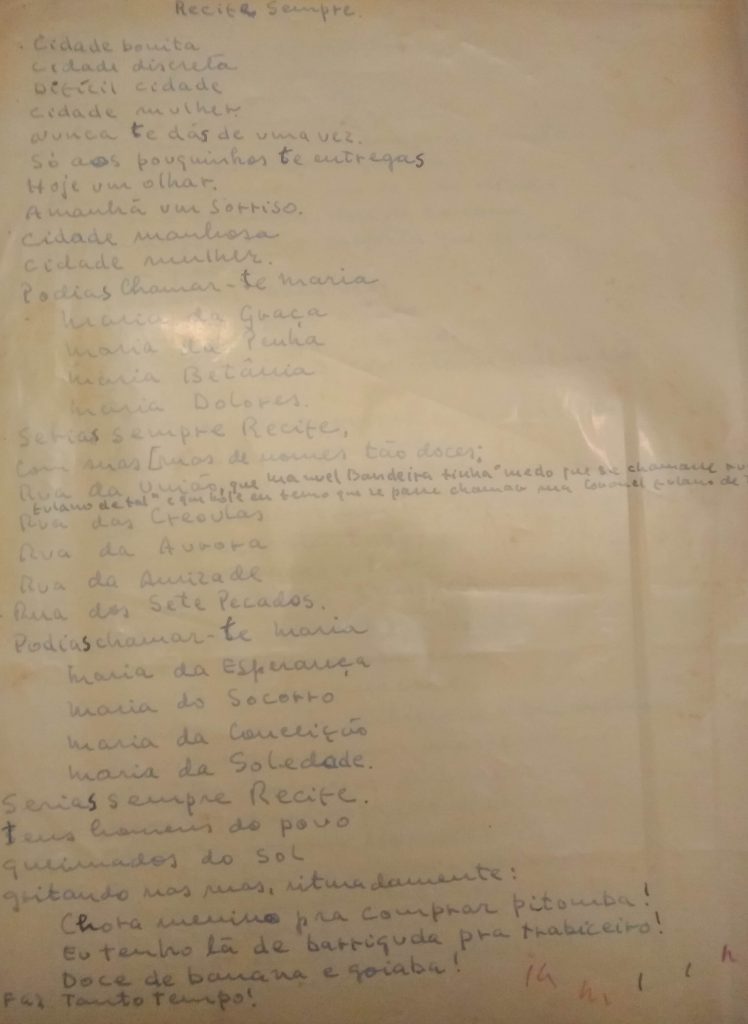 Recife Sempre.
Cidade bonita
Cidade discreta
Difícil cidade
Cidade mulher.
Nunca te dás de uma vez.
Só aos pouquinhos te entregas
Hoje um olhar.
Amanhã um sorriso.
Cidade manhosa
Cidade mulher.
Podias chamar-te Maria
Maria da Graça
Maria da Penha
Maria Betânia
Maria Dolores.
Serias sempre Recife,
Com suas [ruas de nomes tão doces;
Rua da União, que Manuel Bandeira tinha "medo que se chamasse rua
fulano de tal" e que hoje eu temo que se passe chamar rua Coronel fulano de
Rua das Creoulas
Rua da Aurora
Rua da Amizade
Rua dos Sete Pecados.
Podias chamar-te Maria
Maria da Esperança
Maria do Socorro
Maria da Conceição
Maria da Soledade.
Serias sempre Recife.
teus homens do povo
queimados do sol
gritando nas ruas, ritmadamente:
Chora menino pra comprar pitomba!
Eu tenho lã de barriguda pra trabiceiro!
Doce de banana e goiaba!
Faz Tanto Tempo!